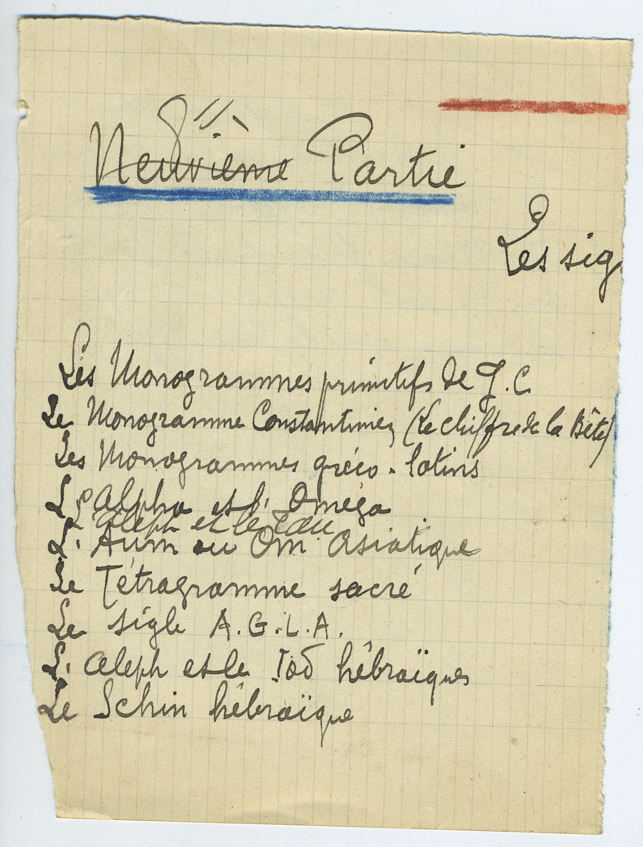 8ème
Neuvième Partie
Les sig
Les Monogrammes primitifs de J. C
Le Monogramme Constantinien (le chiffre de la Bête)
Les Monogrammes gréco-latins
L'Alpha et l'Oméga
L'Aleph et le Tau
L'Aum ou Om asiatique
Le Tétragramme sacré
Le sigle A.G.L.A.
L'aleph et le Iod hébraïques
Le Schin hébraïque